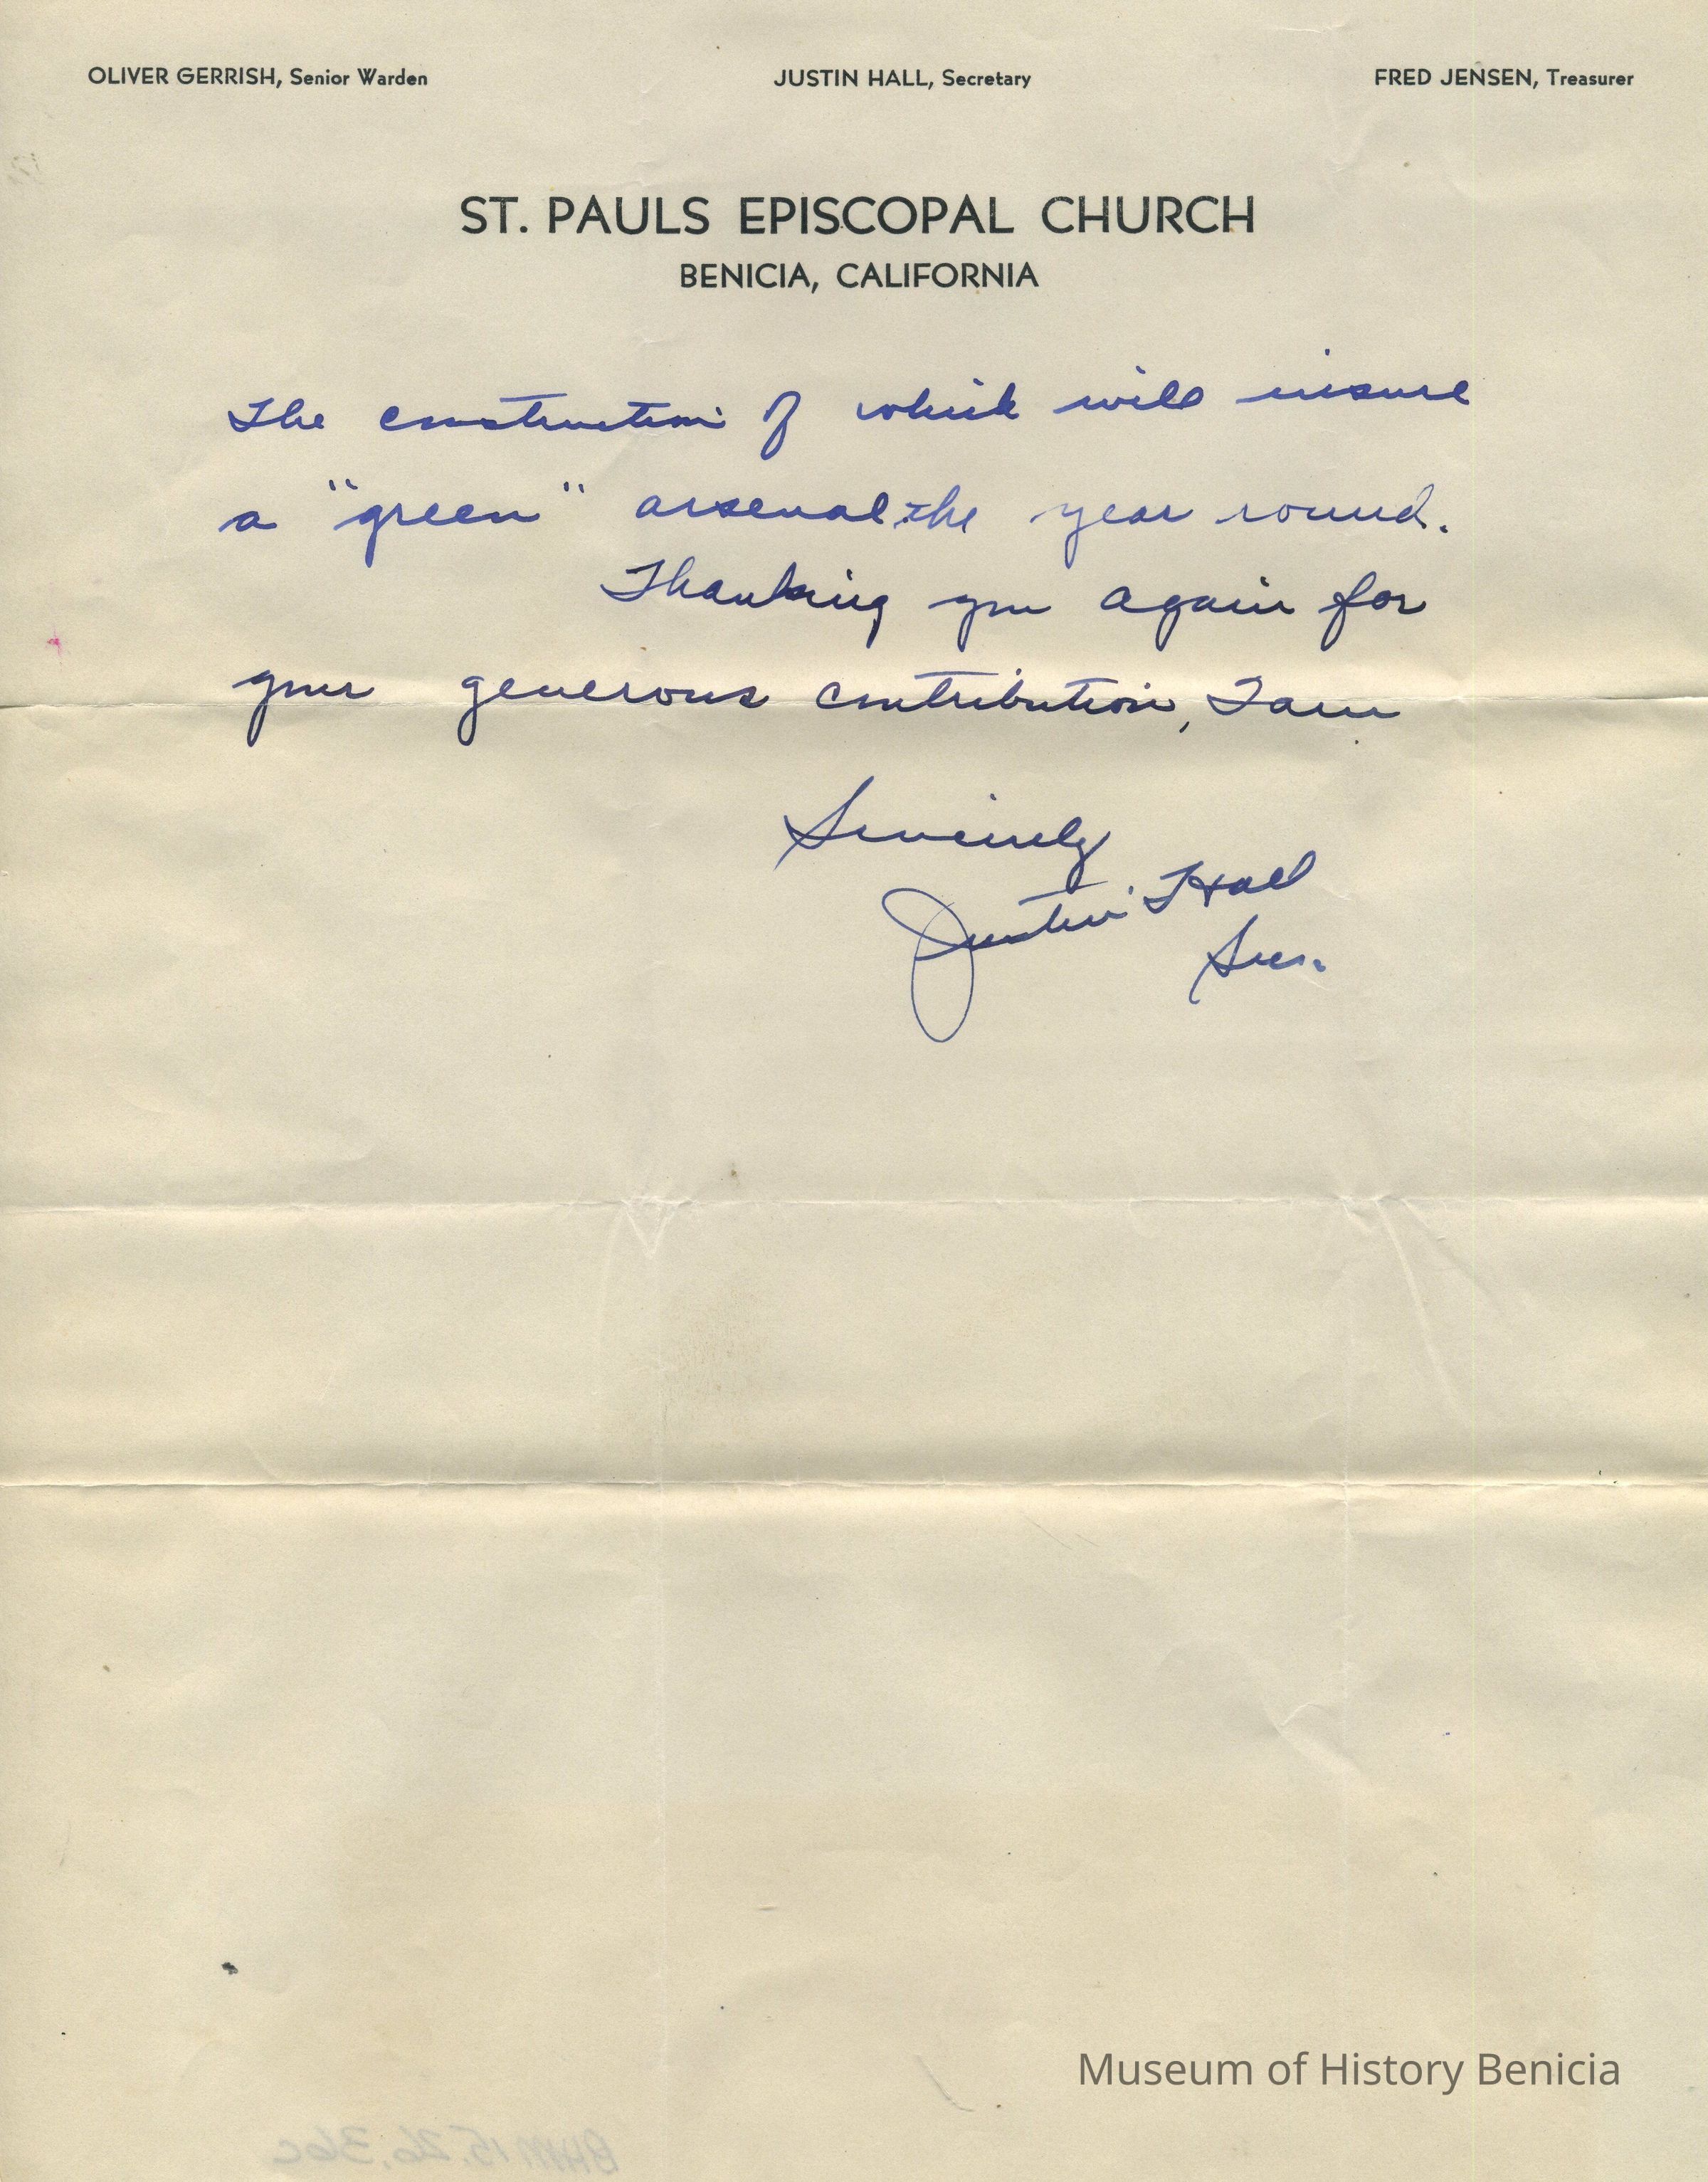 OLIVER GERRISH, Senior Warden JUSTIN HALL, Secretary FRED JENSEN, Treasurer
ST. PAULS EPISCOPAL CHURCH
BENICIA, CALIFORNIA
the construction of which will insure
a "green" arsenal the year round.
Thanking you again for
your generous contribution, I am
Sincerely
Justin Hall
Sec.
Museum of History Benicia
BHM 15.26.36c